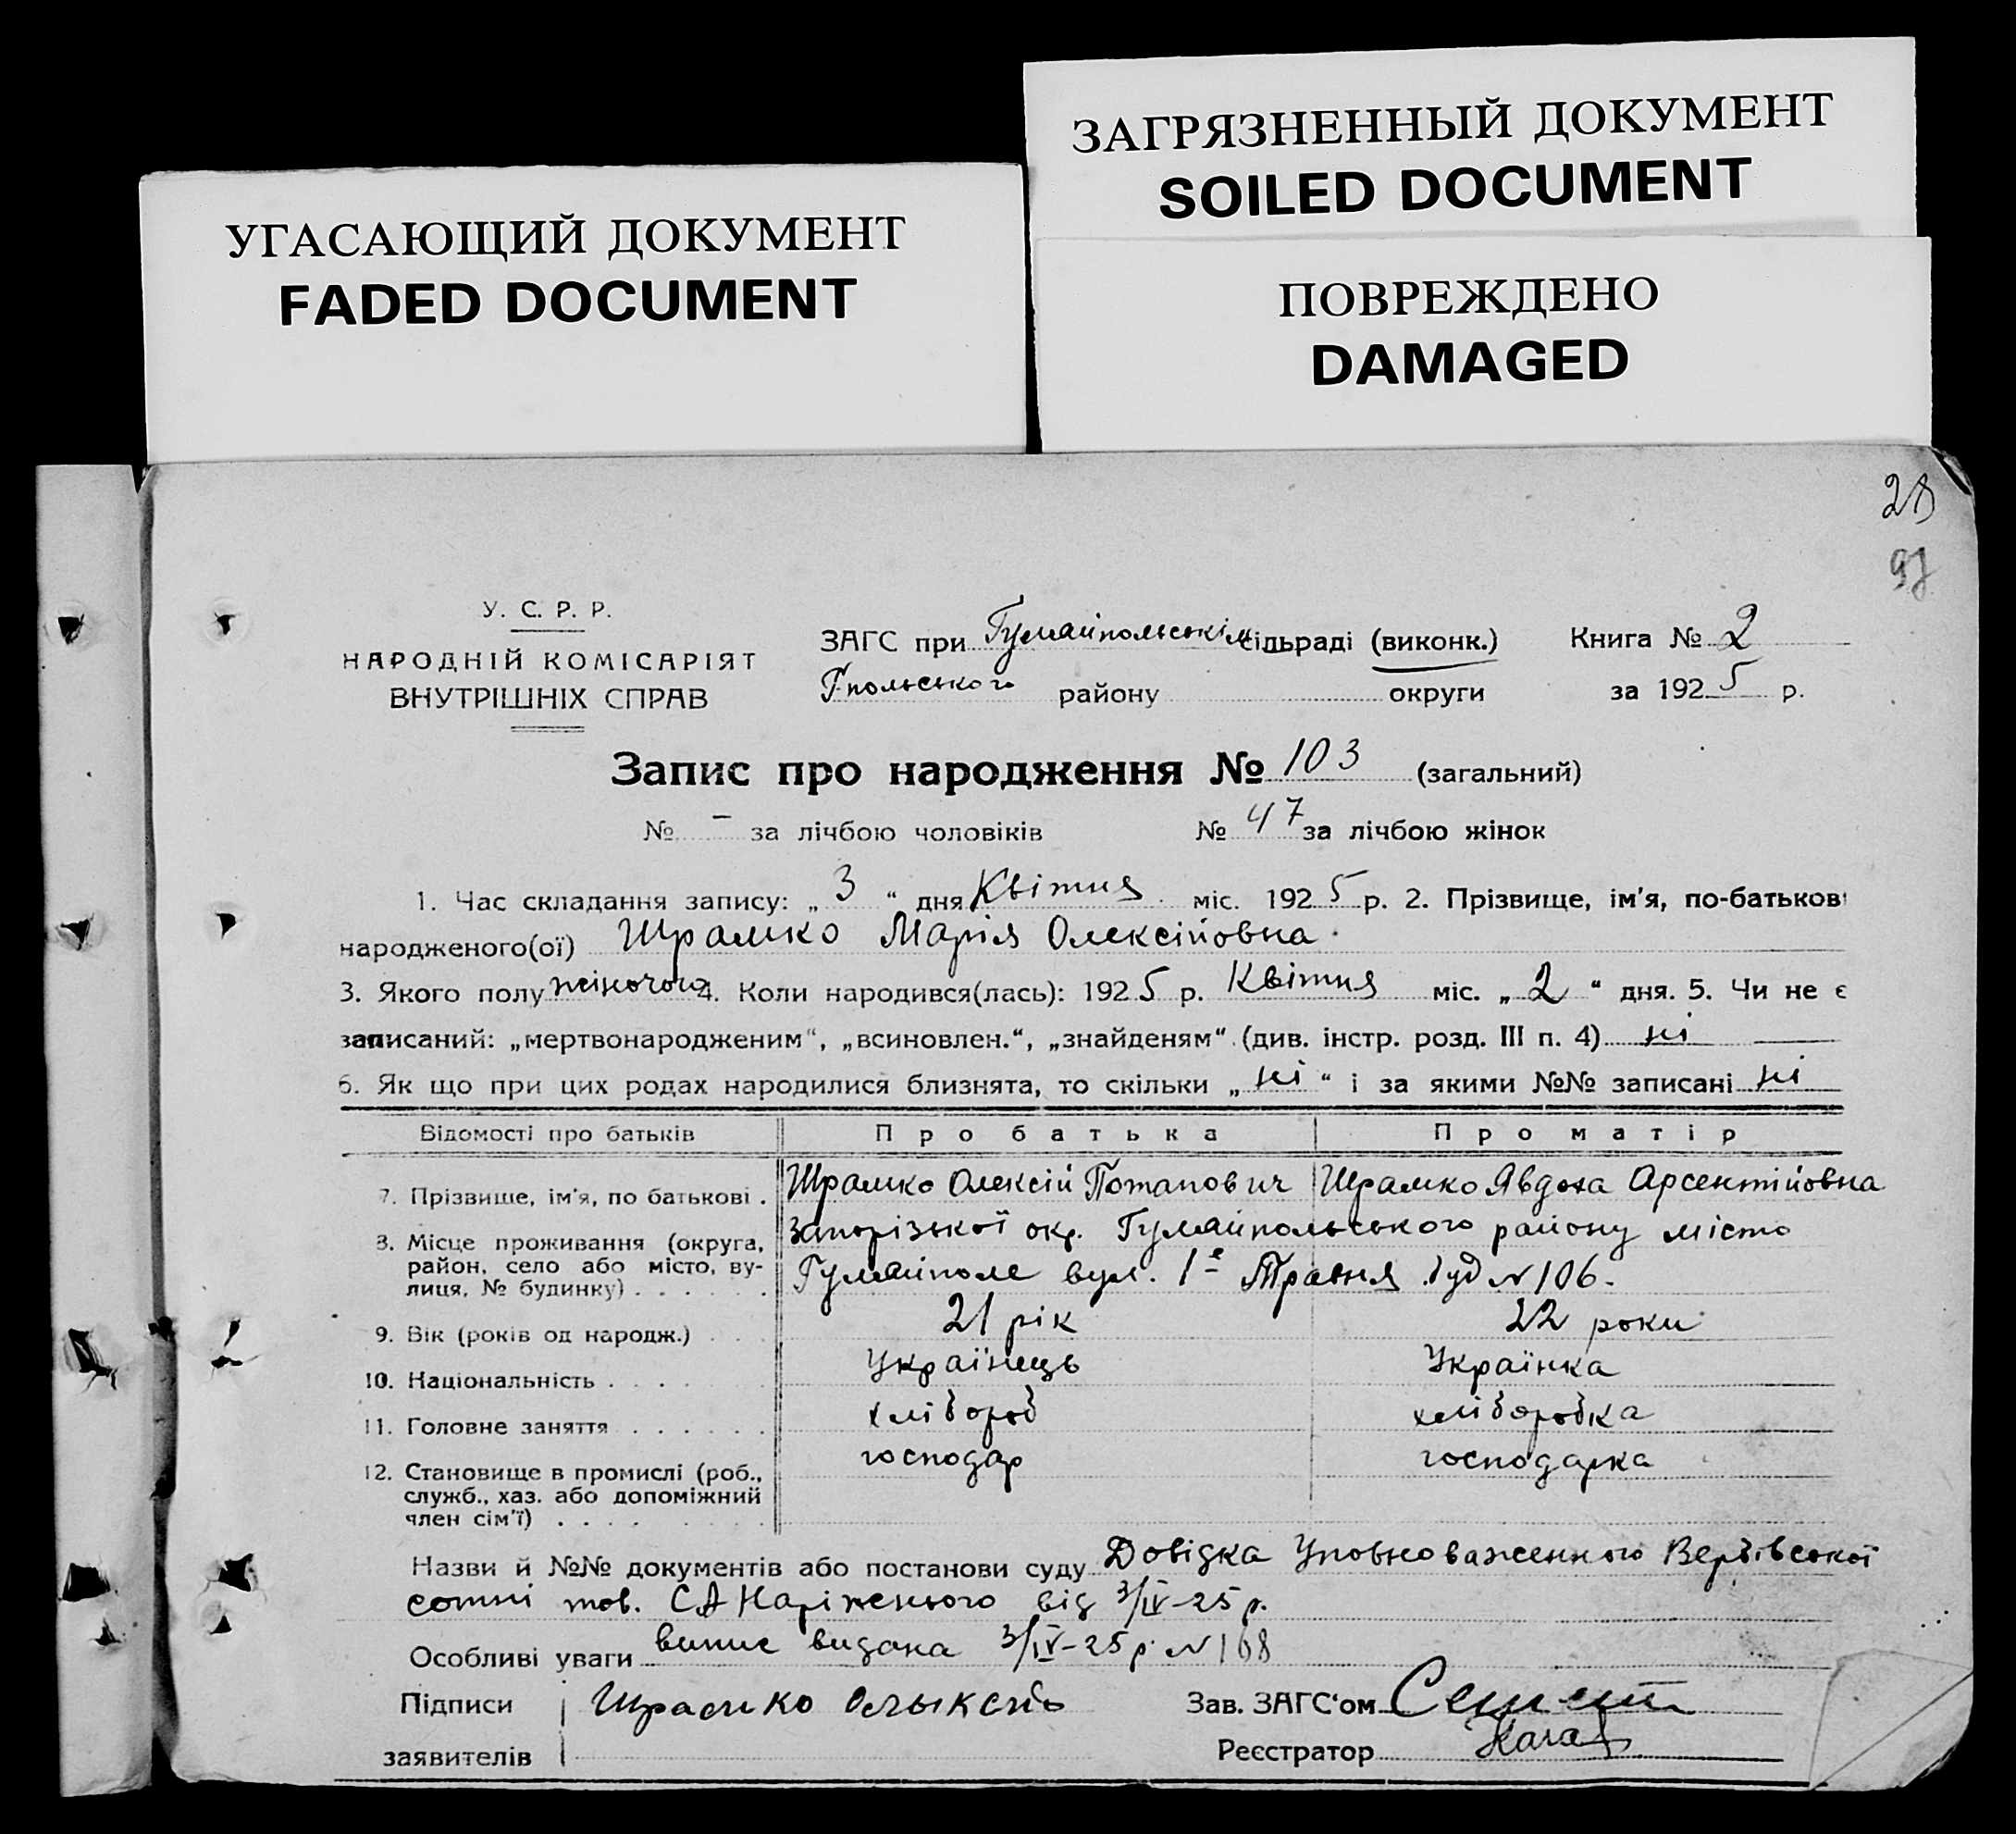 ЗАГРЯЗНЕННЫЙ ДОКУМЕНТ
SOILED DOCUMENT
УГАСАЮЩИЙ ДОКУМЕНТ
FADED DOCUMENT
ПОВРЕЖДЕНО
DAMAGED
28
97
У. С. Р. Р.
НАРОДНІЙ КОМІСАРІЯТ
ВНУТРІШНІХ СПРАВ
ЗАГС при Гуляйпольськім сільраді (виконк.) Книга № 2
Г-польського району округи за 1925 р.
Запис про народження № 103 (загальний)
№ – за лічбою чоловіків № 47 за лічбою жінок
1. Час складання запису: „ 3 “ дня Квітня міс. 1925 р. 2. Прізвище, ім'я, по-батькові
народженого(ої) Шрамко Марія Олексійовна
3. Якого полу жіночого 4. Коли народився(лась): 1925 р. Квітня міс. „ 2 “ дня. 5. Чи не є
записаний: „мертвонародженим“, „всиновлен.“, „знайденям“ (див. інстр. розд. III п. 4) ні
6. Як що при цих родах народилися близнята, то скільки „ ні “ і за якими №№ записані ні
Відомості про батьків Про батька Про матір
7. Прізвище, ім'я, по батькові . Шрамко Олексій Потапович Шрамко Явдоха Арсентійовна
8. Місце проживання (округа, район, село або місто, вулиця, № будинку) Запорізької окр. Гуляйпольського району місто
Гуляйполе вул. 1е Травня буд № 106.
9. Вік (років од народж.) 21 рік 22 роки
10. Національність Українець Українка
11. Головне заняття хлібороб хліборобка
12. Становище в промислі (роб., служб., хаз. або допоміжний член сім'ї) господар господарка
Назви й №№ документів або постанови суду Довідка Уповноваженного Вербівської
сотні тов. СА Наріжнього від 3/IV-25 р.
Особливі уваги випис видана 3/IV-25 р. № 168
Підписи Шрамко Олыксій Зав. ЗАГС'ом
заявителів Реєстратор